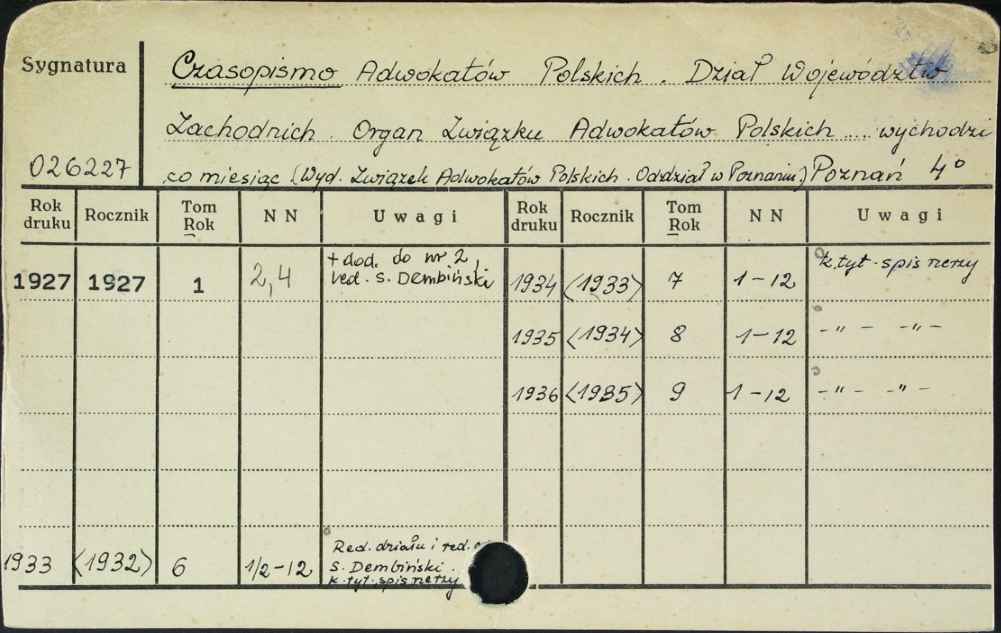 Sygnatura
Czasopismo Adwokatów Polskich. Dział Województw
Zachodnich. Organ Związku Adwokatów Polskich .... wychodzi
026227
co miesiąc (Wyd. Związek Adwokatów Polskich. Oddział w Poznaniu) Poznań 4°
Rok druku Rocznik Tom Rok NN Uwagi Rok druku Rocznik Tom Rok NN Uwagi
1927 1927 1 2,4 + dod. do nr 2, red. S. Dembiński 1934 <1933> 7 1-12 k.tyt. spis rzeczy
1935 <1934> 8 1-12 -"- -"-
1936 <1935> 9 1-12 -"- -"-
1933 <1932> 6 1/2-12 Red. działu i red.
S. Dembiński.
k.tyt. spis rzeczy